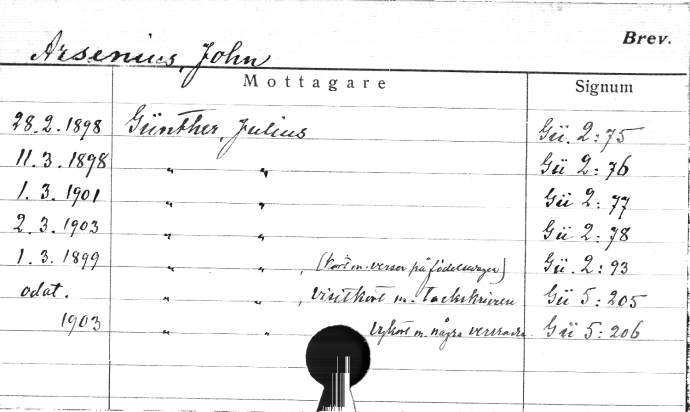 Brev.
Arsenius, John
Mottagare Signum
28.2.1898 Günther, Julius Gü. 2:75
11.3.1898 " " Gü 2:76
1.3.1901 " " Gü 2:77
2.3.1903 " " Gü 2:78
1.3.1899 " " , (kort m. verser på födelsedagen) Gü. 2:93
odat. " " , visitkort m. Gü 5:205
1903 " " vykort m. några versrader Gü 5:206